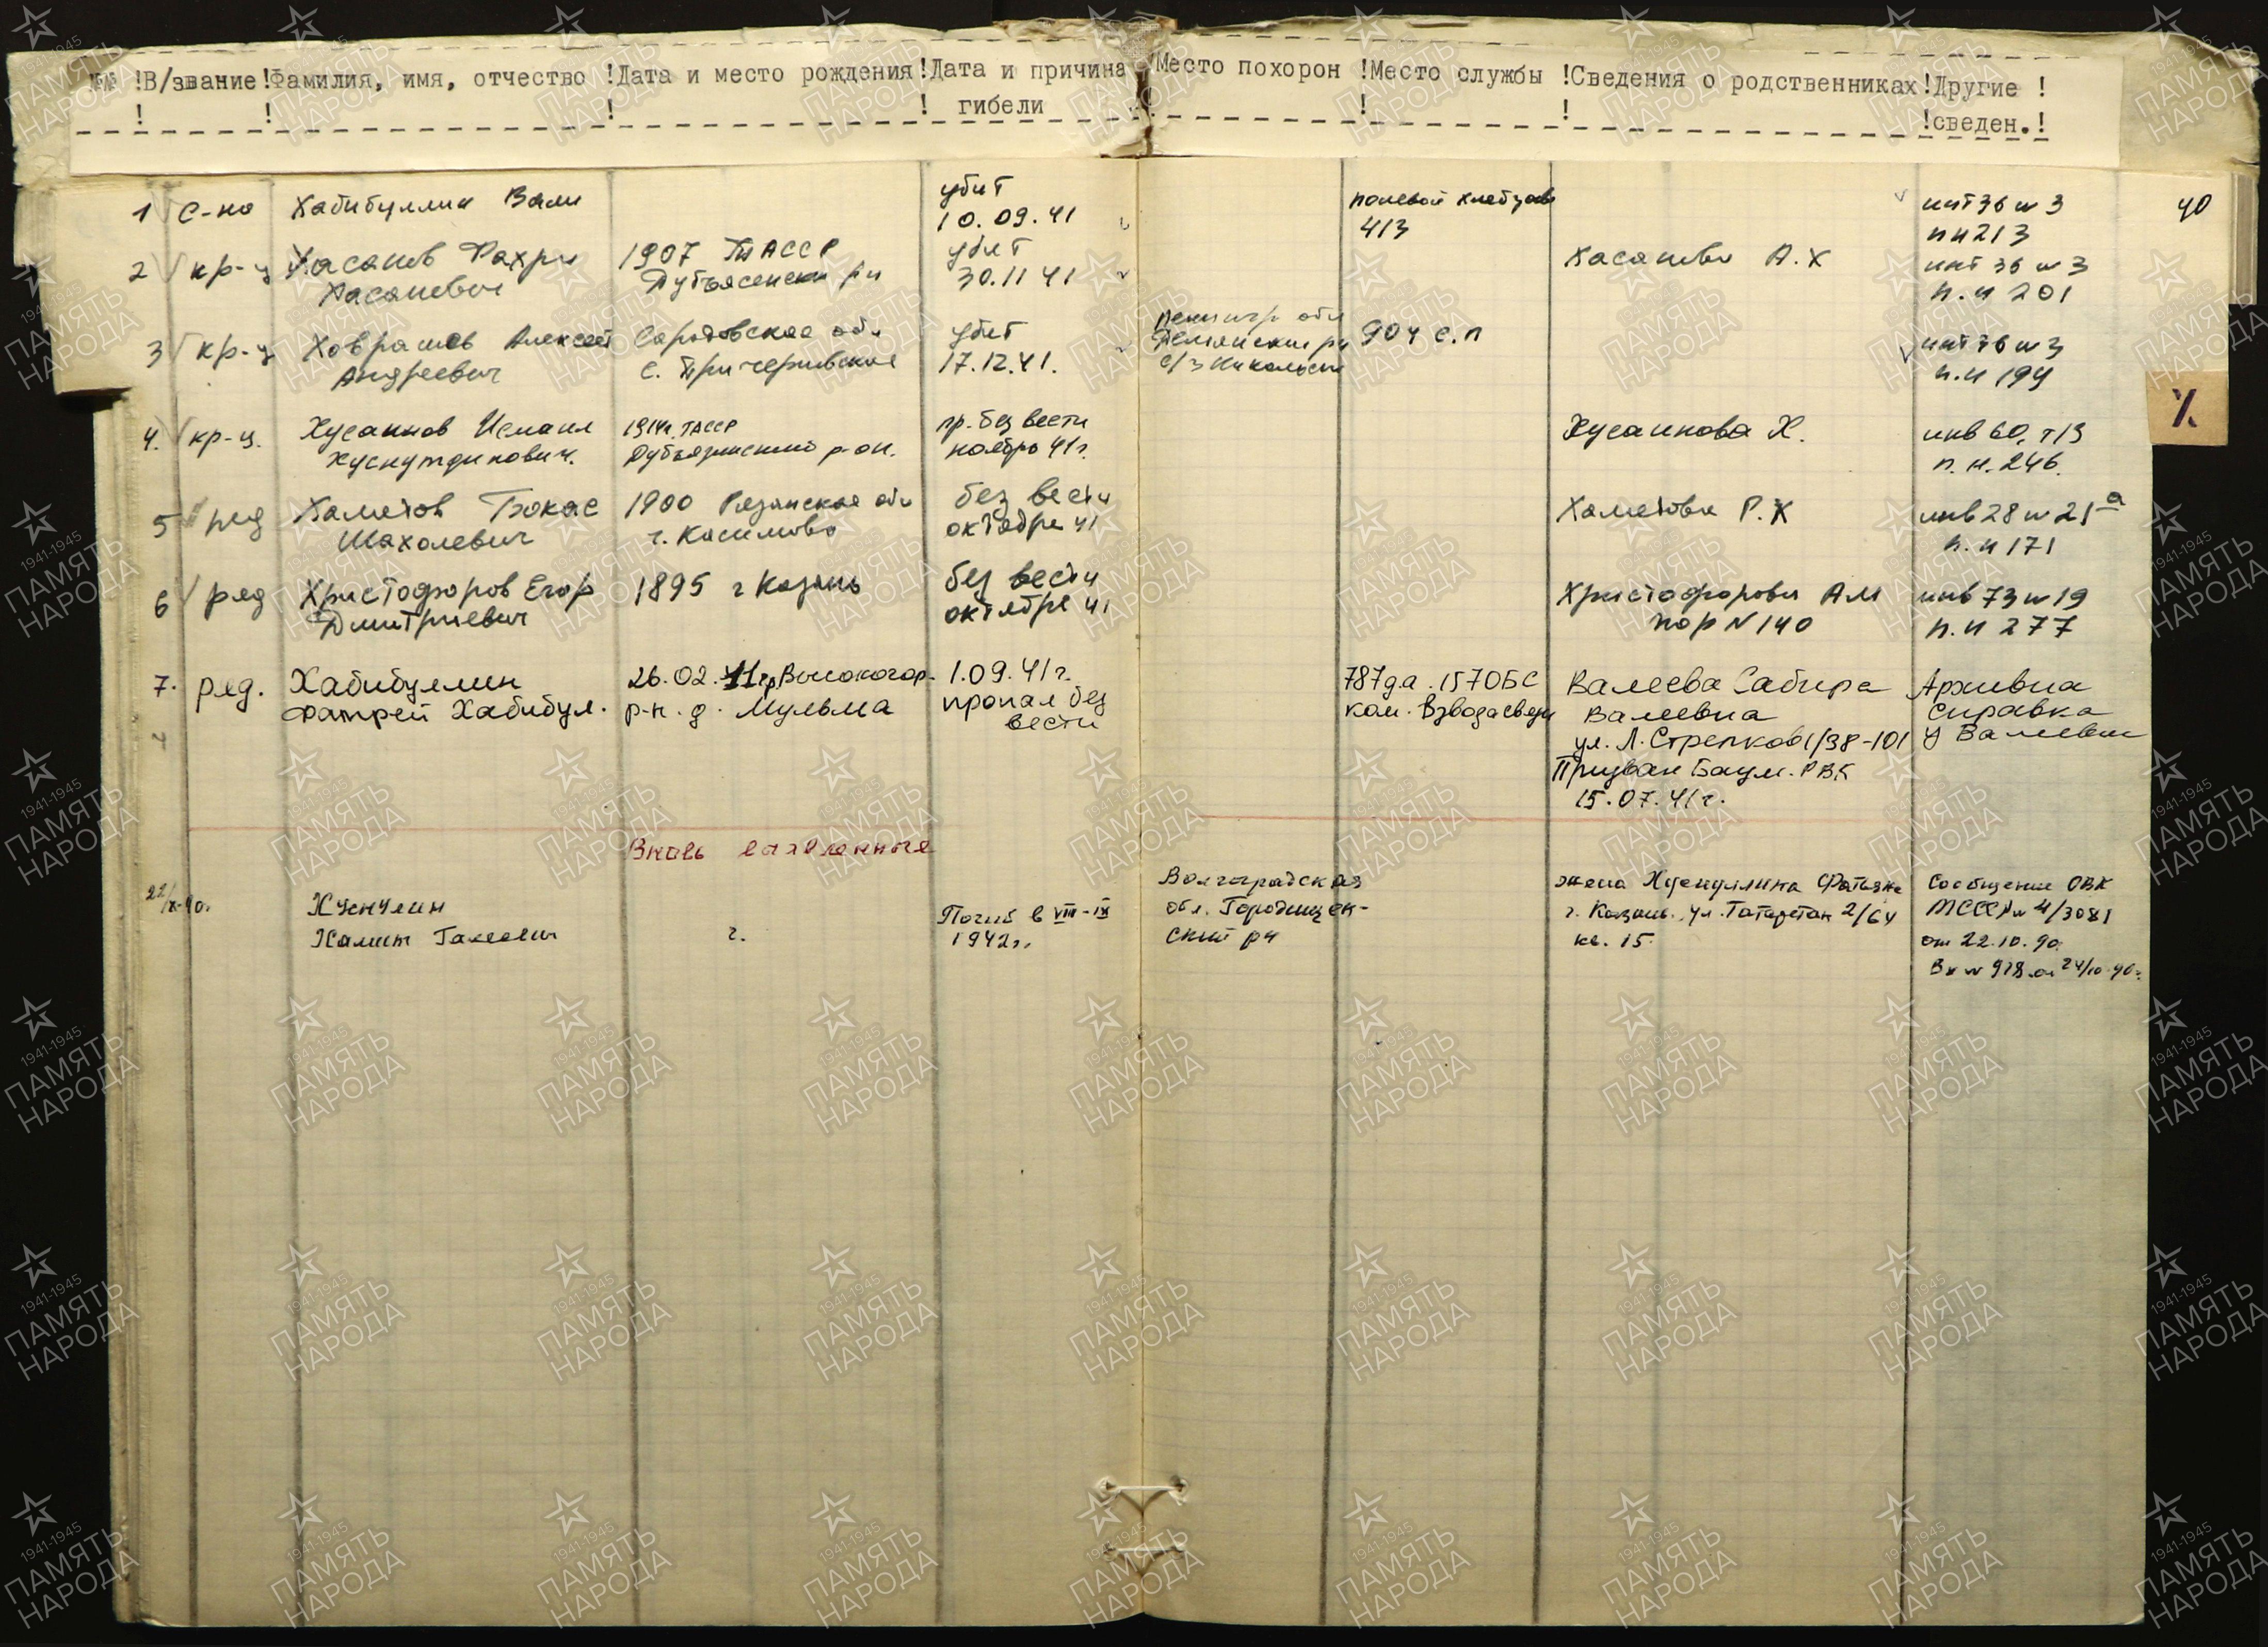 №№ !В/звание!Фамилия, имя, отчество !Дата и место рождения!Дата и причина гибели !Место похорон !Место службы !Сведения о родственниках!Другие сведен.!
1 с-на Хабибуллин Вали
убит
10.09.41
полевой хлебзавод
413
инв 36 № 3
пн 213
40
2 кр-ц Хасанов Фахри
Хасанович
1907 ТАССР
Дубъясенски рн
убит
30.11 41
Хасанова А.Х
инв 36 № 3
п.н 201
3 кр-ц Ховрашов Алексей
Андреевич
Саратовская обл
убит
17.12.41.
Ленингр обл
Демянский рн
904 с.п
инв 36 № 3
п.н 194
Х
4. кр-ц. Хусаинов Исмаил
Хуснутдинович.
1914г. ТАССР
Дубъязинский р-он.
пр. без вести
ноябрь 41г.
Хусаинова Х.
инв 60, т13
п.н. 246.
5 ряд Хаметов
1900 Рязанская обл
г. Касимово
без вести
октябре 41
Хаметова Р.Х
инв 28 № 21а
п.н 171
6 ряд Христофоров Егор
Дмитриевич
1895 г Казань
без вести
октябре 41
Христофорова АМ
пор N 140
инв 73 № 19
п.н 277
7. ряд. Хабибуллин
Хабибул.
26.02.11гр Высокогор.
р-н. д. Мульма
1.09.41г.
пропал без
вести
787 д.а. 157 ОБС
ком. взвода связи
Валеева Сабира
Валеевна
ул. Л. Стрелков 1/38-101
Призван Баум. РВК
15.07.41г.
Архивна
справка
у Валеевы
Вновь выявленные
22/X-90г.
Халит Галеевич
г.
Погиб в VIII-IX
1942г.
Волгоградская
обл. Городищен-
ский рн
жена Хуснуллина
г. Казань. ул. Татарстан 2/64
кв. 15.
Сообщение ОВК
ТАССР № 4/3081
от 22.10.90
Вх № 978 от 24/10-90г.
ПАМЯТЬ
НАРОДА
1941-1945